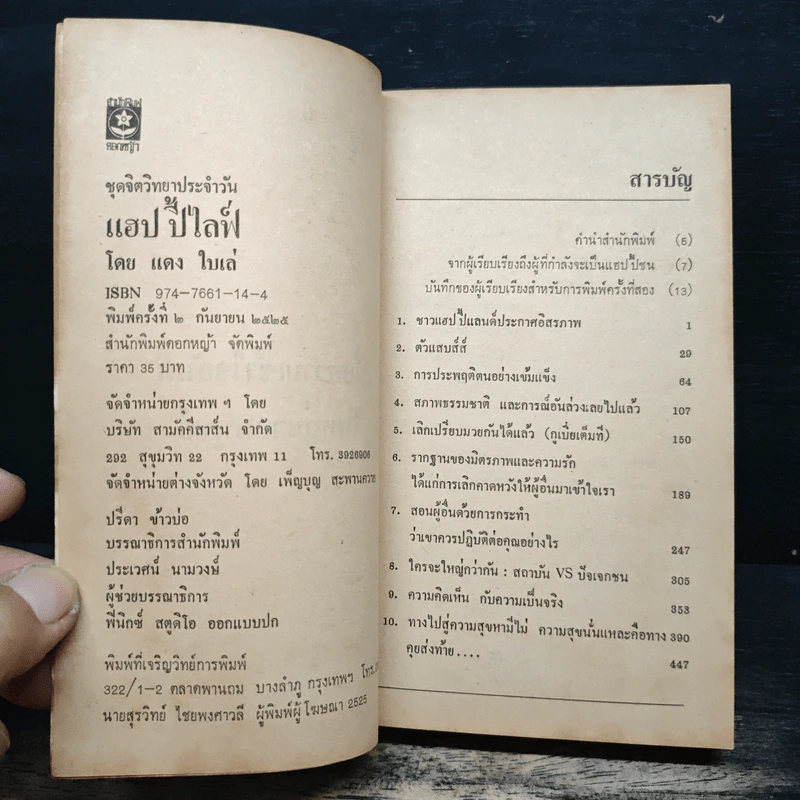 สำนักพิมพ์
ดอกหญ้า
ชุดจิตวิทยาประจำวัน
แฮปปี้ไลฟ์
โดย แดง ใบเล่
ISBN 974-7661-14-4
พิมพ์ครั้งที่ ๒ กันยายน ๒๕๒๕
สำนักพิมพ์ดอกหญ้า จัดพิมพ์
ราคา 35 บาท
จัดจำหน่ายกรุงเทพ ฯ โดย
บริษัท สามัคคีสาส์น จำกัด
292 สุขุมวิท 22 กรุงเทพ 11 โทร. 3926906
จัดจำหน่ายต่างจังหวัด โดย เพ็ญบุญ สะพานควาย
ปรีดา ข้าวบ่อ
บรรณาธิการสำนักพิมพ์
ประเวศน์ นามวงษ์
ผู้ช่วยบรรณาธิการ
ฟีนิกซ์ สตูดิโอ ออกแบบปก
พิมพ์ที่เจริญวิทย์การพิมพ์
322/1-2 ตลาดพานถม บางลำภู กรุงเทพฯ โทร.
นายสุรวิทย์ ไชยพงศาวลี ผู้พิมพ์ผู้โฆษณา 2525
สารบัญ
คำนำสำนักพิมพ์ (5)
จากผู้เรียบเรียงถึงผู้ที่กำลังจะเป็นแฮปปี้ชน (7)
บันทึกของผู้เรียบเรียงสำหรับการพิมพ์ครั้งที่สอง (13)
1. ชาวแฮปปี้แลนด์ประกาศอิสรภาพ 1
2. ตัวแสบส์ส์ 29
3. การประพฤติตนอย่างเข้มแข็ง 64
4. สภาพธรรมชาติ และการณ์อันล่วงเลยไปแล้ว 107
5. เลิกเปรียบมวยกันได้แล้ว (กูเบื่อเต็มที) 150
6. รากฐานของมิตรภาพและความรัก
ได้แก่การเลิกคาดหวังให้ผู้อื่นมาเข้าใจเรา 189
7. สอนผู้อื่นด้วยการกระทำ
ว่าเขาควรปฏิบัติต่อคุณอย่างไร 247
8. ใครจะใหญ่กว่ากัน : สถาบัน VS ปัจเจกชน 305
9. ความคิดเห็น กับความเป็นจริง 353
10. ทางไปสู่ความสุขหามีไม่ ความสุขนั่นแหละคือทาง 390
คุยส่งท้าย.... 447